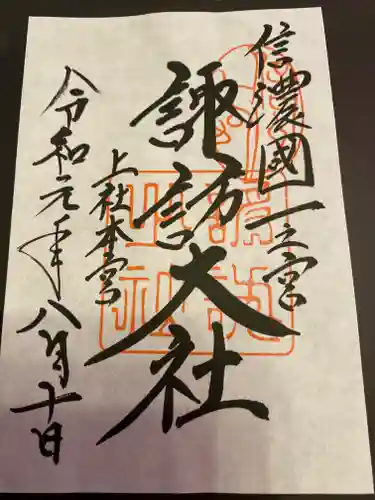 信濃國一之宮
諏訪大社
上社本宮
令和元年八月十日